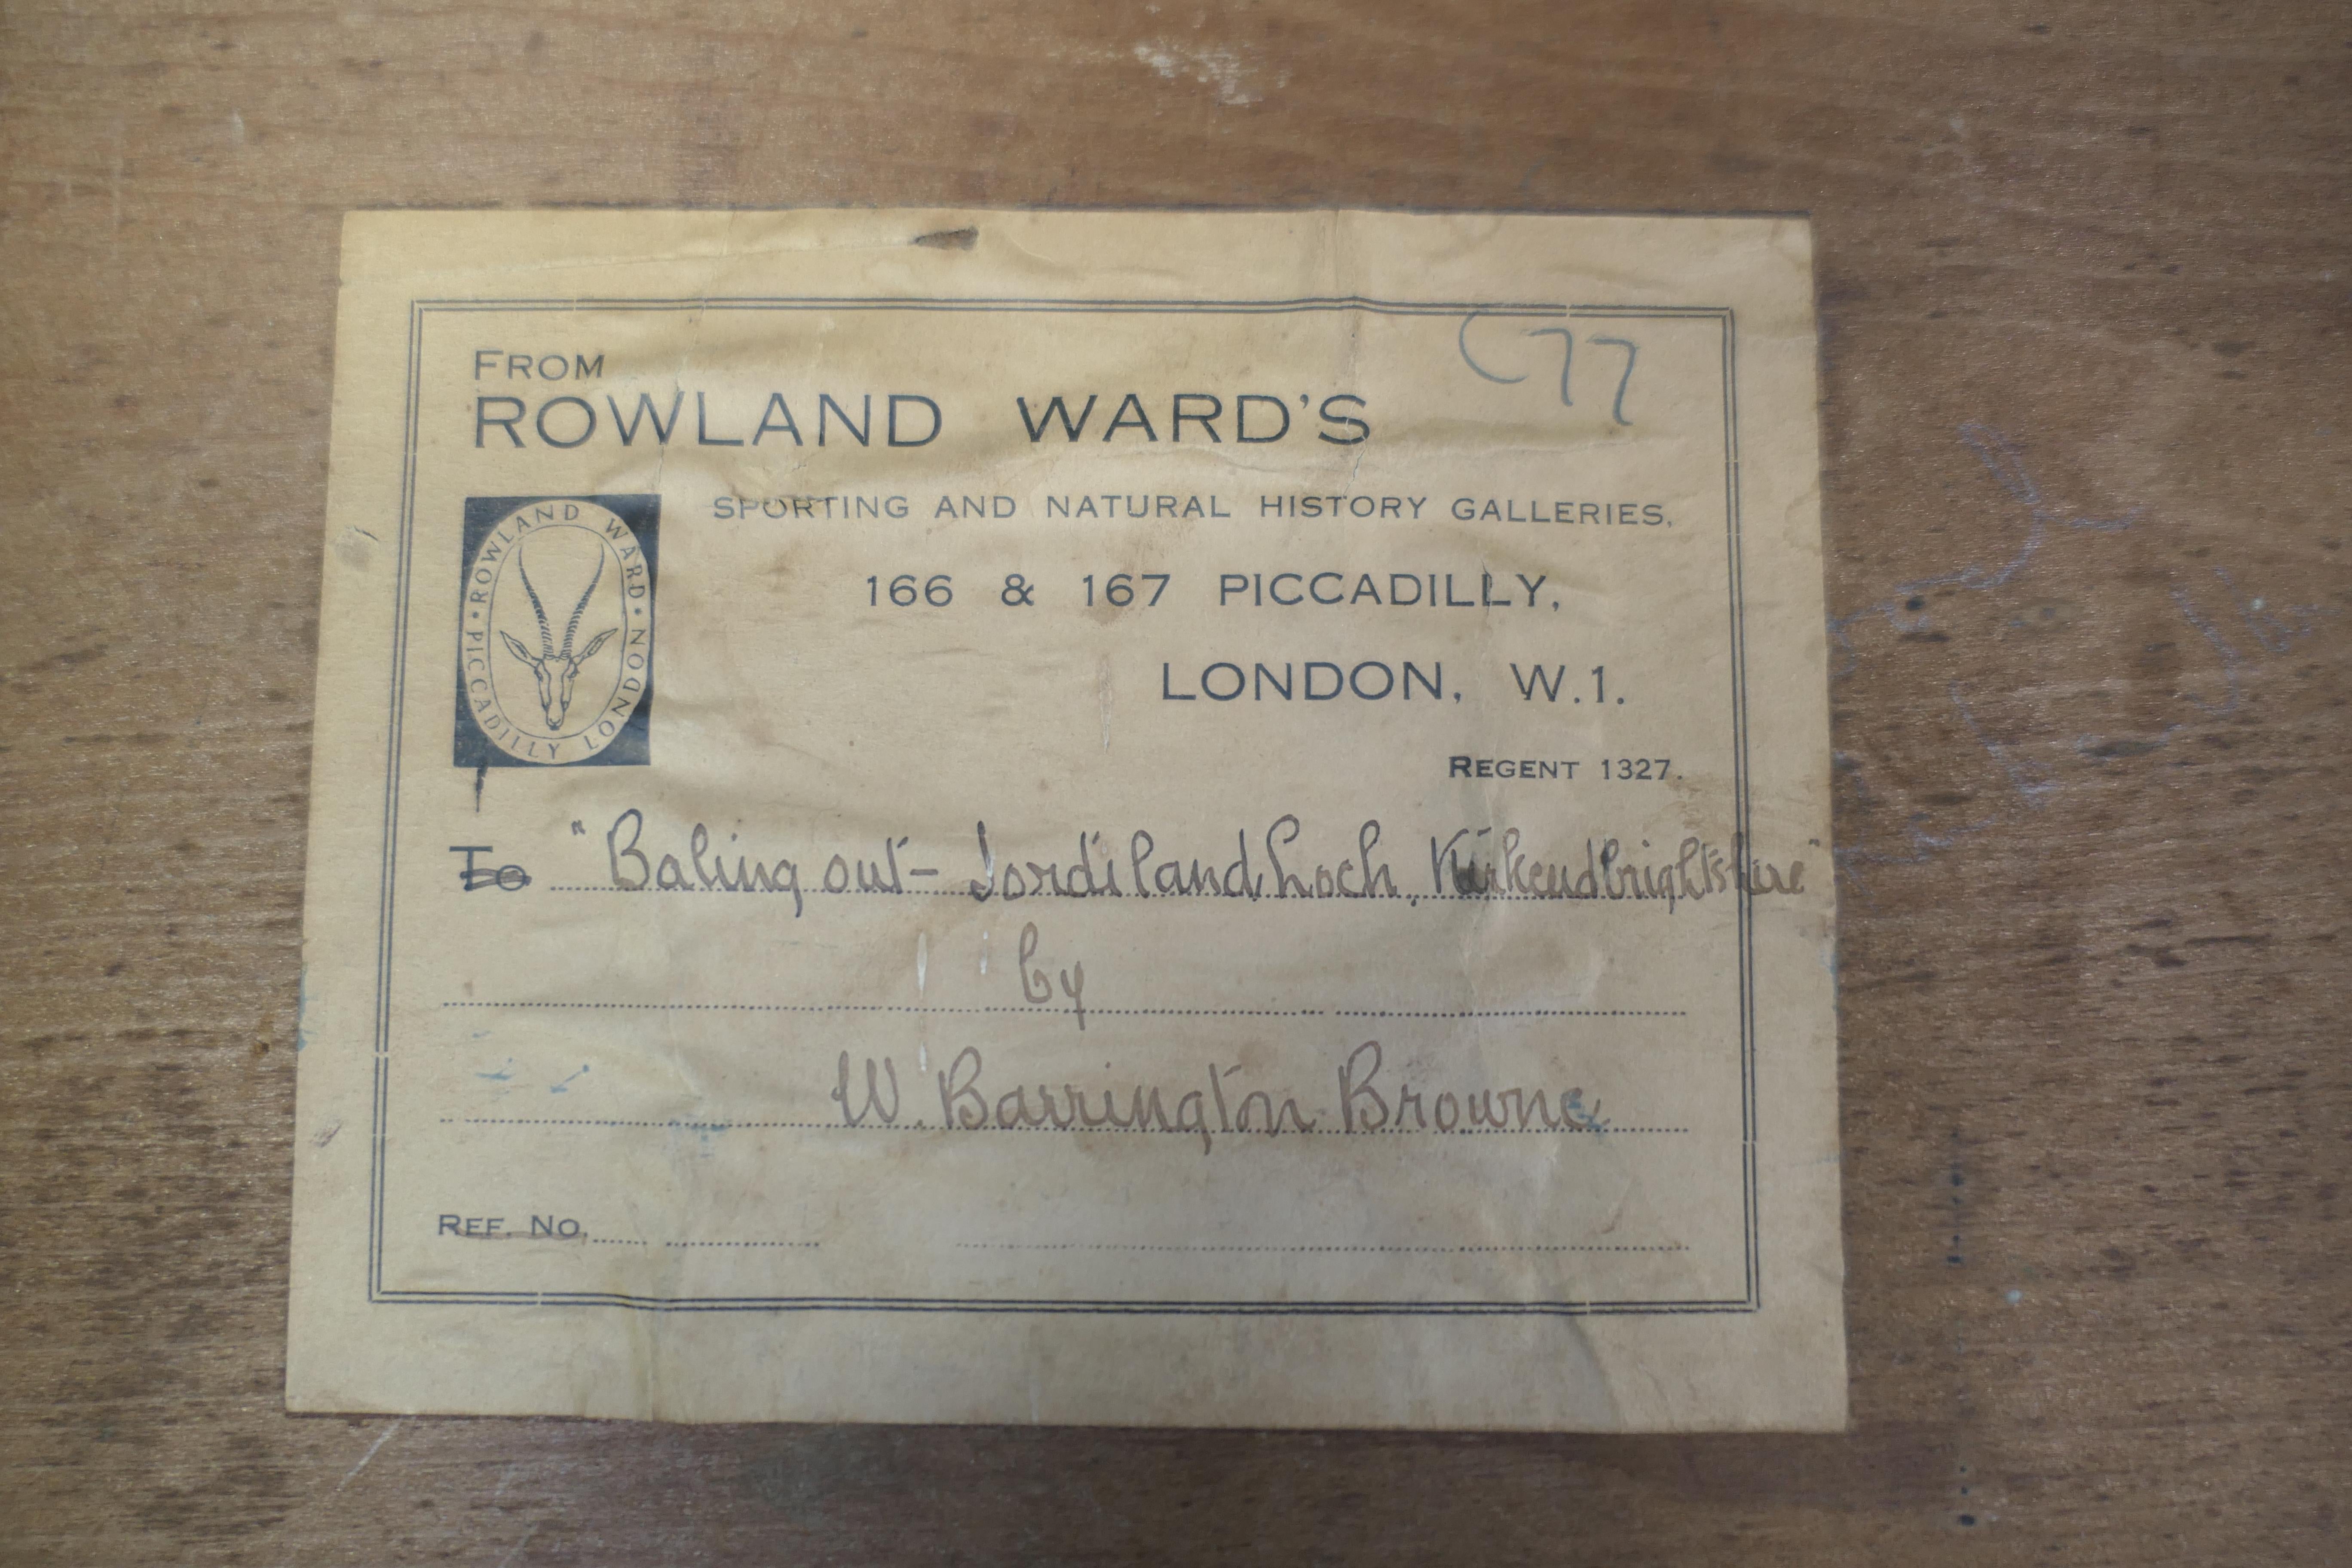 C77
FROM
ROWLAND WARD'S
SPORTING AND NATURAL HISTORY GALLERIES,
166 & 167 PICCADILLY,
LONDON, W.1.
REGENT 1327.
• ROWLAND WARD • PICCADILLY LONDON
To "Baling out - Jordiland Loch, Kirkcudbrightshire"
by
W. Barrington Browne
REF. No.